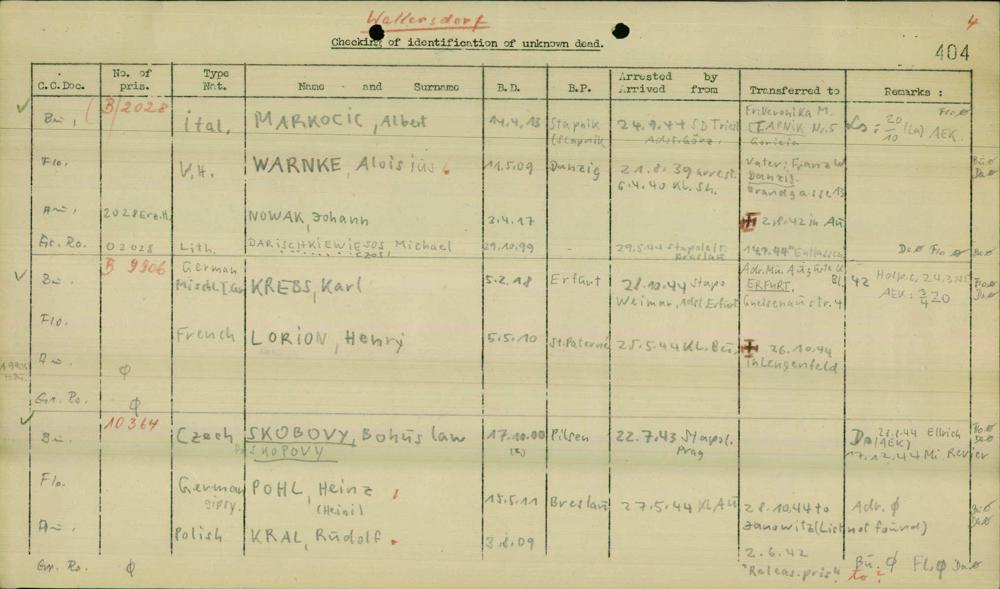 Wallersdorf
4
Checking of identification of unknown dead.
404
C.C.Doc. No. of pris. Type Nat. Name and Surname B.D. B.P. Arrested by Arrived from Transferred to Remarks :
Bu, (B/2028 ital. MARKOCIC, Albert 14.4.13 Stapnik 24.9.44 SD Triest Fr: Veronika M.
(Stapnik Adr. Görz. STAPNIK Nr. 5 20/10 AEK.
Goricia
Flo. V.H. WARNKE, Aloisius 11.5.09 Danzig 21.8.39 arrest. Vater: Franz W
6.4.40 Kl. Sh. Danzig.
Brandgasse 13
Au, 2028 Erz.H. NOWAK Johann 3.4.17 2.8.42 in Au
Gr. Ro. 02028 Lith. DARISCHKIEWIESOS Michael 29.10.99 - 29.5.44 Stapoleit. Breslau 14.7.44 "Entlassen Da ø Flo ø Bu ø
B 9906 German
Bu. Mischl. KREBS, Karl 5.2.18 Erfurt 28.10.44 Stapo ERFURT, Holpe.c. 24.3.45
Weimar, Adst Erfurt Gneisenaustr. 4 AEK: 3/4 20
Flo. French LORION, Henry 5.5.10 St. Paterne 25.5.44 KL. Bu. 26.10.44
in Lengenfeld
Au ø
Gr. Ro. ø
10364
Bu. Czech SKOBOVY, Bohuslaw 17.10.00 Pilsen 22.7.43 Stapol. Prag Da 28.1.44 Ellrich
SKOPOVY (2) (AEK) 17.12.44 Mi. Revier
Flo. German gipsy. POHL, Heinz (Heini) 15.5.11 Breslau 27.5.44 KL Au 28.10.44 to Adr. ø
Janowitz (List not found)
Au, Polish KRAL, Rudolf. 3.8.09
2.6.42
Gr. Ro. ø "Releas. pris" to? Bu. ø Flo. ø Da ø